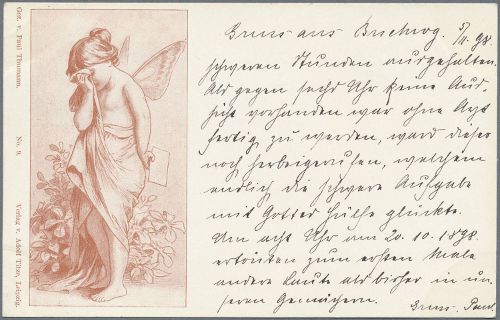 Gez. v. Paul Thumann.
No. 9.
Verlag v. Adolf Titze, Leipzig.
Gruss aus 5/11. 98.
schweren Stunden ausgehalten.
Als gegen sechs Uhr keine Aus-
sicht vorhanden war ohne Arzt
fertig zu werden, ward dieser
noch herbeigerufen, welchem
endlich die schwere Aufgabe
mit Gottes Hülfe glückte.
Um acht Uhr am 20.10.1898.
ertönten zum ersten Male
andere Laute als bisher in un-
seren Gemächern.
Gruss. Paul